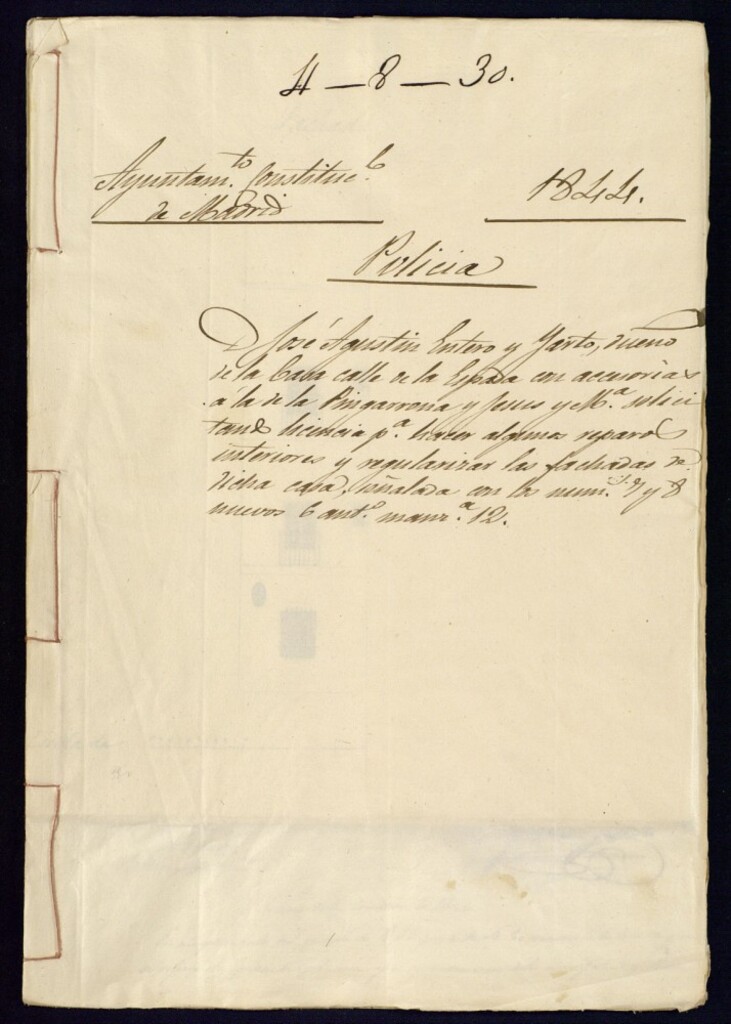 4 — 8 — 30.
Ayuntam.to Constituc.l
de Madrid
1844.
Policia
D José Agustin Entero y Yarto, dueño
de la Casa calle de la Espada con accesorias
á la de la Pingarrona y Jesus y M.a solici
tando licencia p.a hacer algunos reparos
interiores y regularizar las fachadas de
dicha casa, señalada con los num.s 7 y 8
nuevos 6 ant.o manz.a 12.